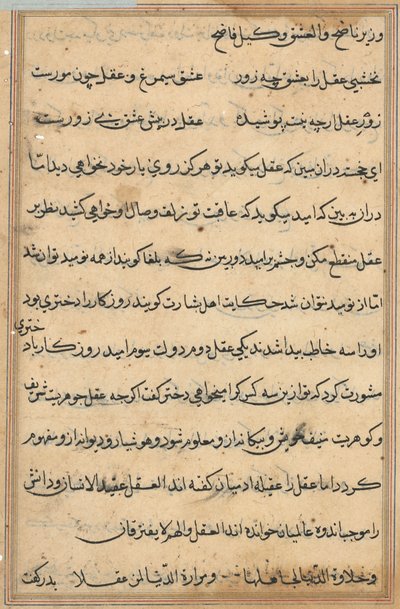 وزیر ناصح والعشق وکیل فاضح
نخشبی عقل را بعشق چه زور عشق سیمرغ و عقل چون مورست
زور عقل ارچه بست پوشیده عقل در پیش عشق بی زورست
ای خجسته دران مبین که عقل میکوید تو هرکز روی یار خود نخواهی دید اما
دران به بین که امید میکوید که عاقبت تو زلف وصال او خواهی کشید نظر بر
عقل منقطع مکن و چشم بر امید دوربین نه که بلغا کویند از همه نومید توان شد
اما از نومید نتوان شد حکایت اهل بشارت کویند روزکار را دختری بود
اورا سه خاطب پیدا شدند یکی عقل دوم دولت سوم امید روزکار با
ختری
مشورت کرد که تو ازین سه کس کرا میخواهی دختر کفت اکرچه عقل جوهریست شریف
و کوهریست خویش و بیکانه ازو معلوم شود و هشیار و دیوانه ازو مفهوم
کردد اما عقل را عقیله ادمیان کفته اند العقل عقیله الانسان و دانش
را موجب اندوه عالمیان خوانده اند العقل والهم لا یفترقان
وحلاوة الدنیا لجاهلها ومرارة الدنیا لمن عقلا پدر کفت